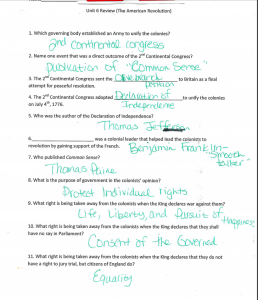 Unit 6 Review (The American Revolution)
1. Which governing body established an Army to unify the colonies?
2nd continental congress
2. Name one event that was a direct outcome of the 2nd Continental Congress?
publication of "Common Sense"
3. The 2nd Continental Congress sent the Olive branch petition to Britain as a final
attempt for peaceful resolution.
4. The 2nd Continental Congress adopted Declaration of Independence to unify the colonies
on July 4th, 1776.
5. Who was the author of the Declaration of Independence?
Thomas Jefferson
6. was a colonial leader that helped lead the colonists to
revolution by gaining support of the French. Benjamin Franklin-
smooth talker
7. Who published Common Sense?
Thomas Paine
8. What is the purpose of government in the colonists' opinion?
Protect Individual rights
9. What right is being taken away from the colonists when the King declares war against them?
Life, Liberty, and Pursuit of Happiness
10. What right is being taken away from the colonies when the King declares that they shall
have no say in Parliament?
Consent of the Governed
11. What right is being taken away from the colonies when the King declares that they do not
have a right to jury trial, but citizens of England do?
Equality